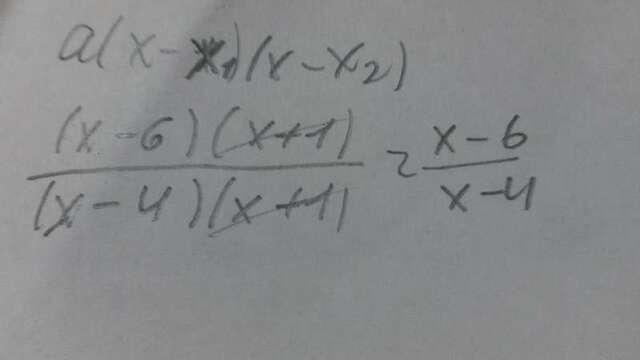 a(x-x₁)(x-x₂)
(x-6)(x+1)
(x-4)(x+1) = x-6
x-4